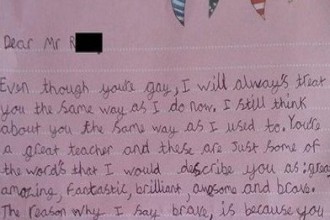 Dear Mr R
Even though you're gay, I will always treat
you the same way as I do now. I still think
about you the same way as I used to. You're
a great teacher and these are just some of
the word's that I would describe you as: great,
amazing, fantastic, brilliant, awesome and brave.
The reason why I say brave, is because you